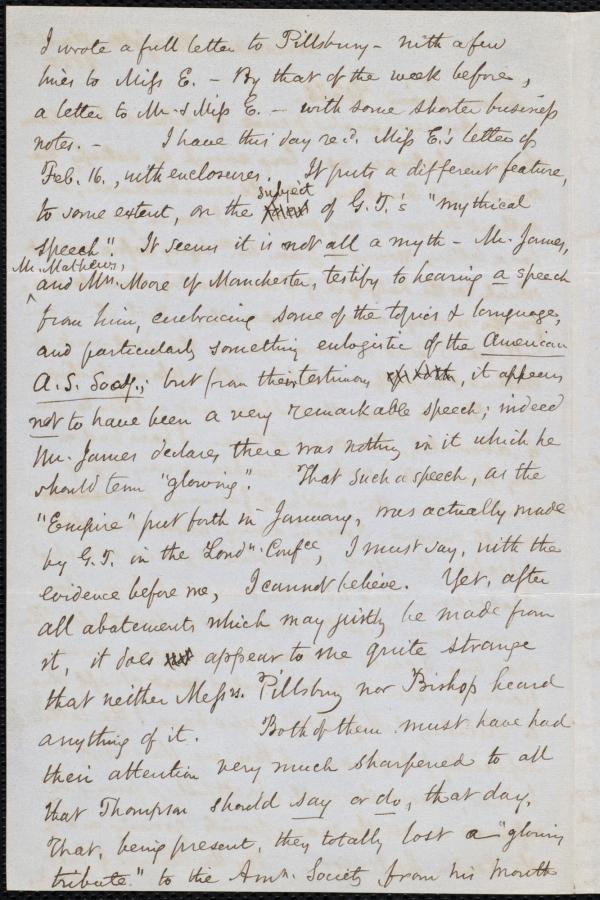 I wrote a full letter to Pillsbury - with a few
lines to Miss E. - By that of the week before,
a letter to Mr. & Miss E. - with some shorter business
notes. - I have this day rec'd. Miss E.'s letter of
Feb. 16., with enclosures. It puts a different feature,
to some extent, on the subject of G.T.'s "mythical
speech". It seems it is not all a myth - Mr. James,
Mr. Mathews,
and Mr. Moore of Manchester, testify to hearing a speech
from him, embracing some of the topics & language,
and particularly something eulogistic of the American
A.S. Socy.; but from their testimony, it appears
not to have been a very remarkable speech; indeed
Mr. James declares there was nothing in it which he
should term "glowing". That such a speech, as the
"Empire" put forth in January, was actually made
by G.T. in the Lond'n. Conf'ce, I must say, with the
evidence before me, I cannot believe. Yet, after
all abatements which may justly be made from
it, it does appear to me quite strange
that neither Messrs. Pillsbury nor Bishop heard
anything of it. Both of them must have had
their attention very much sharpened to all
that Thompson should say or do, that day.
That, being present, they totally lost a "glowing
tribute" to the Amn. Society from his mouth